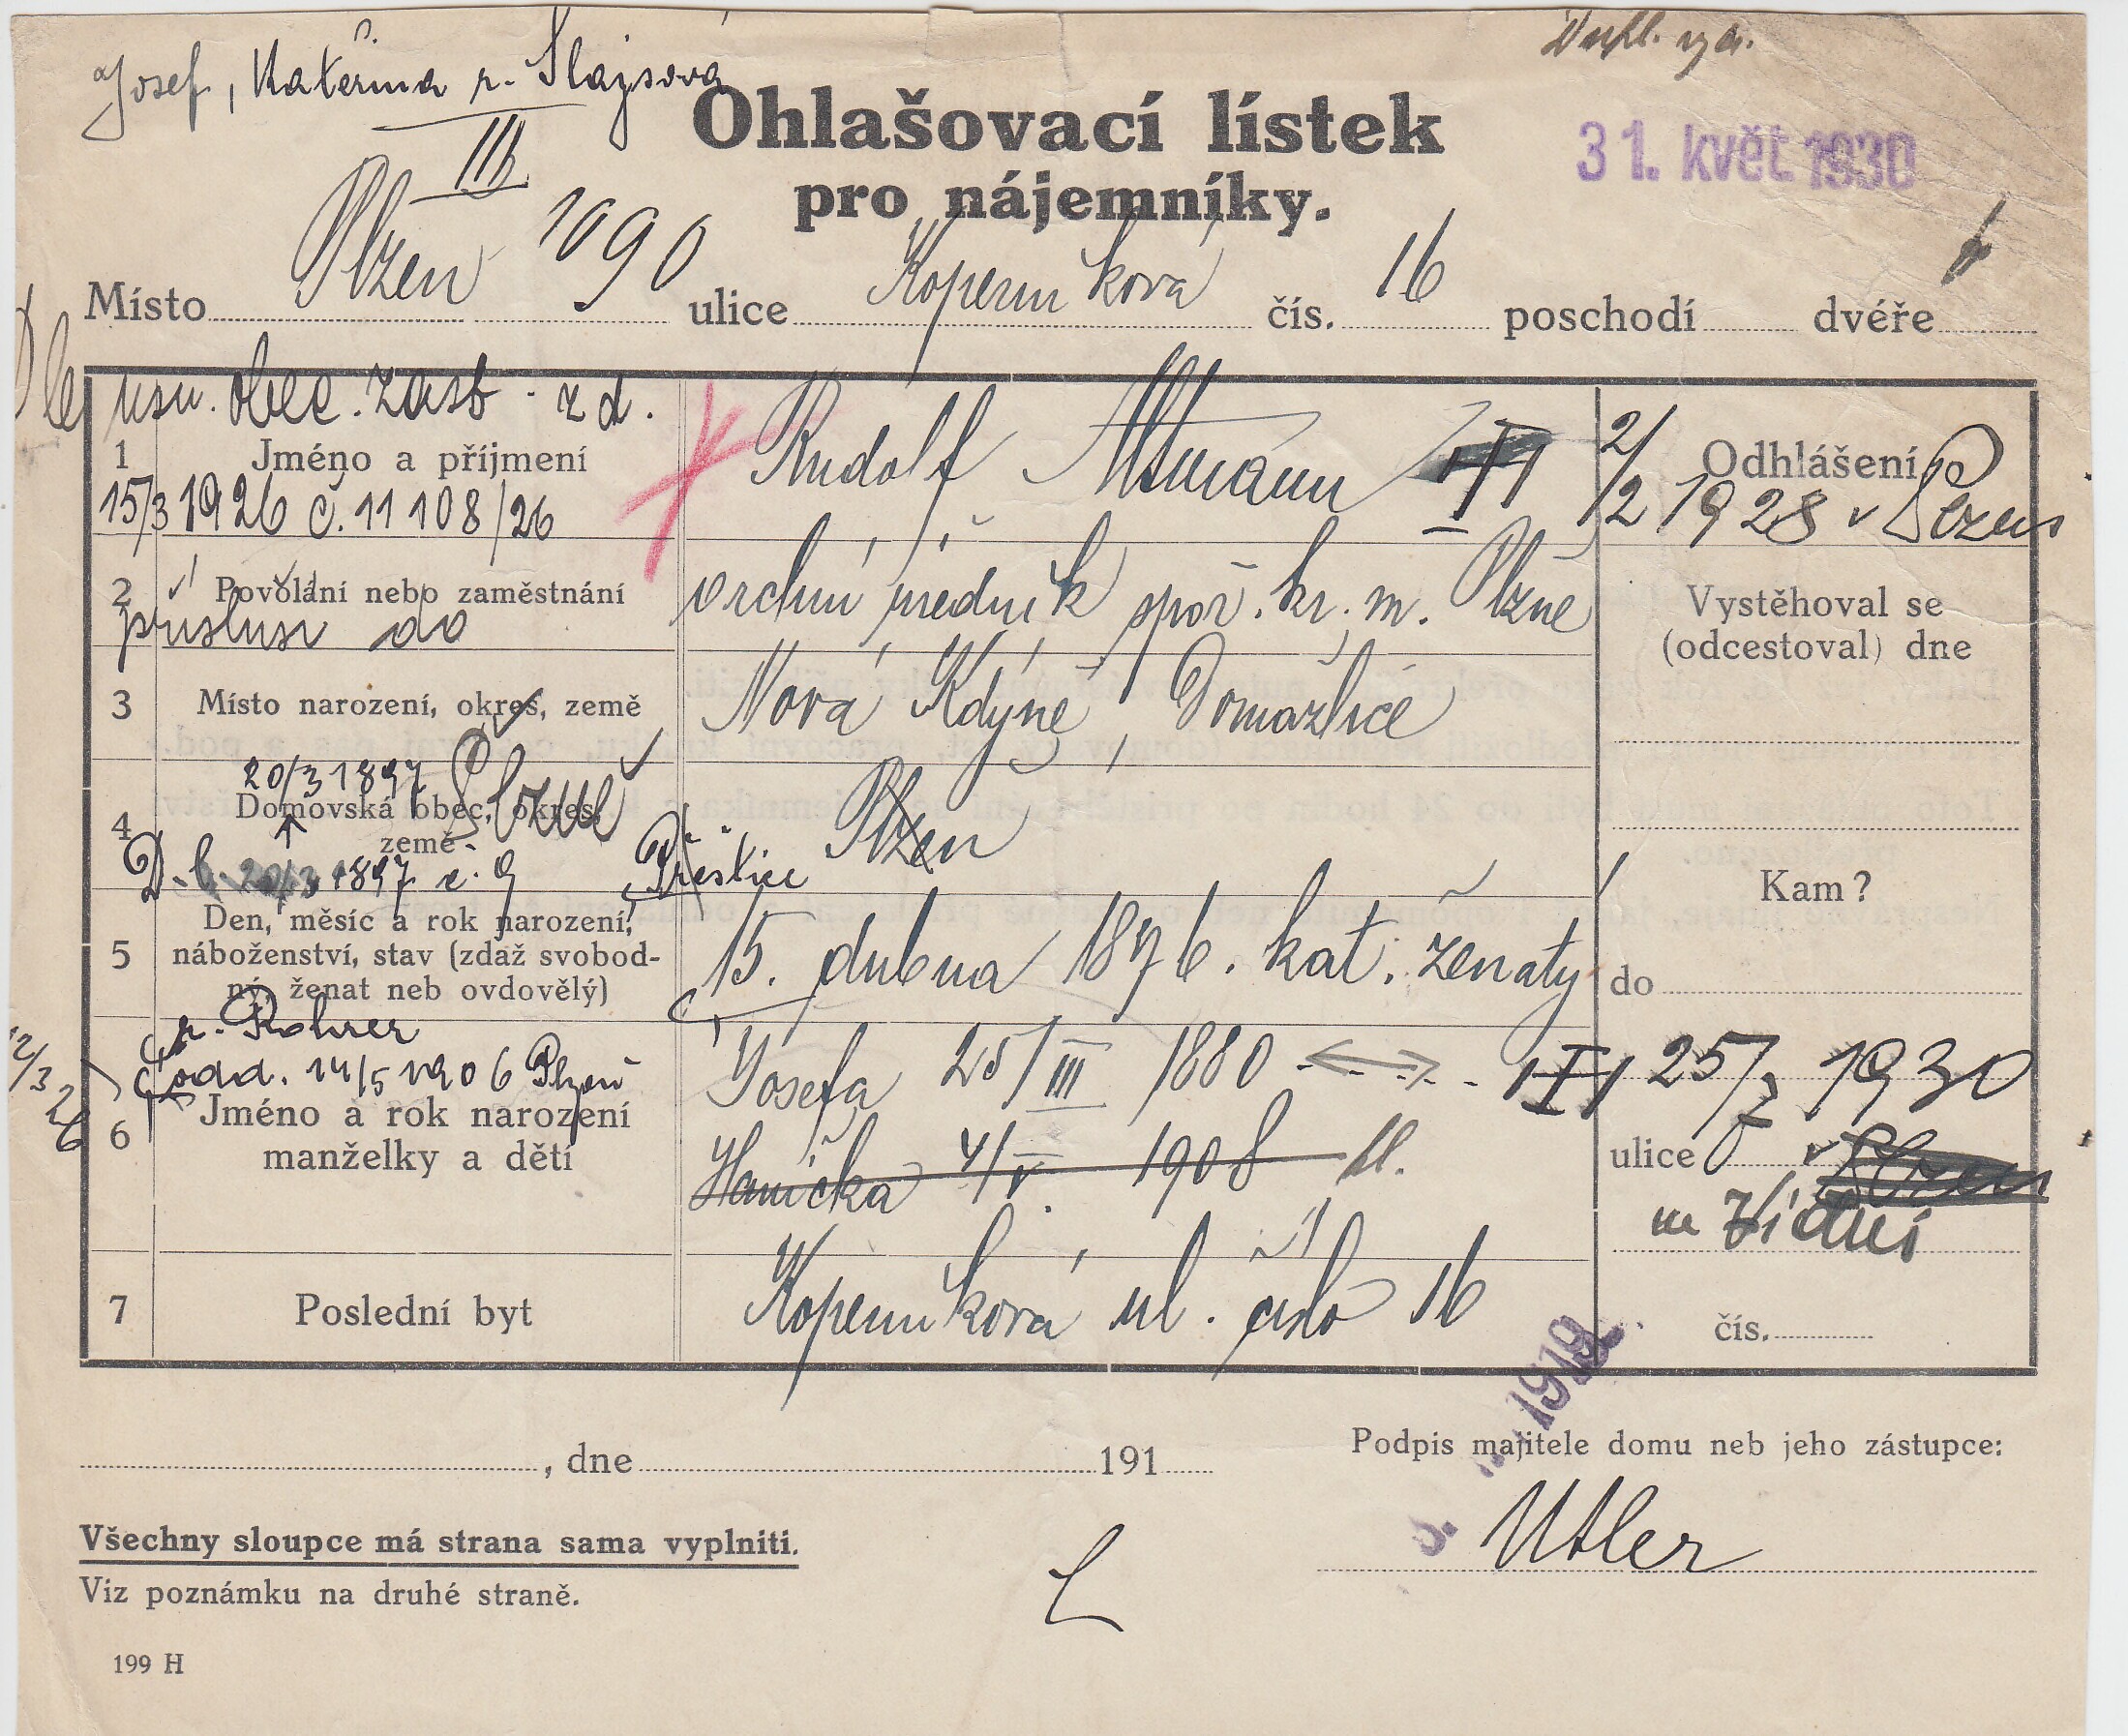 Josef, Kateřina r. Slajsová
III
Ohlašovací lístek
pro nájemníky.
31. květ. 1930
Místo Plzeň 1090 ulice Koperníkova čís. 16 poschodí dvéře
Dle usn. obec. zast. z d.
1 Jméno a příjmení
15/3 1926 č. 11108/26
Rudolf Altmann
Odhlášení
2/2 1928 v Plzni
2 Povolání nebo zaměstnání
přísluší do
vrchní úředník spoř. kr. m. Plzně
Vystěhoval se
(odcestoval) dne
3 Místo narození, okres, země
Nová Kdyně, Domažlice
20/3 1897 Plzně
4 Domovská obec, okres,
země
D. l. 20/3 1897 č. 9
Přeštice
Plzeň
Kam?
5 Den, měsíc a rok narození,
náboženství, stav (zdaž svobod-
ný, ženat neb ovdovělý)
15. dubna 1876. kat. ženatý
do
r. Rohrer
odd. 14/5 1906 Plzeň
12/3 26
6 Jméno a rok narození
manželky a dětí
Josefa 25/III 1880
25/7 1930
Hanička 4/V. 1908
ulice
v Plzni
ve Vídni
7 Poslední byt
Koperníkova ul. číslo 16
čís.
1919
, dne 191
Podpis majitele domu neb jeho zástupce:
Utler
Všechny sloupce má strana sama vyplniti.
Viz poznámku na druhé straně.
199 H